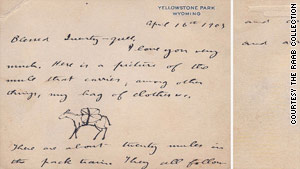 YELLOWSTONE PARK
WYOMING
April 16th 1903
Blessed Quenty-quee,
I love you very
much. Here is a picture of the
mule that carries, among other
things, my bag of clothes
There are about twenty mules in
the pack train. They all follow
and
and
COURTESY THE RAAB COLLECTION